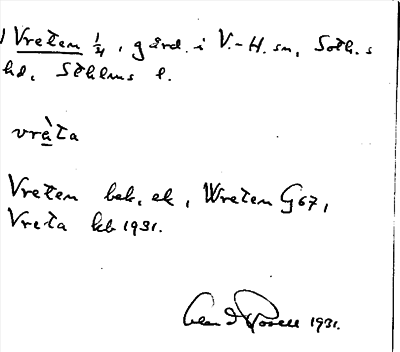 Vreten 1/4, gård i V.-H. sn, Soth.s
hd, Sthlms l.
vràta
Vreten bek. ek, Wreten G67,
Vreta kb 1931.
1931.